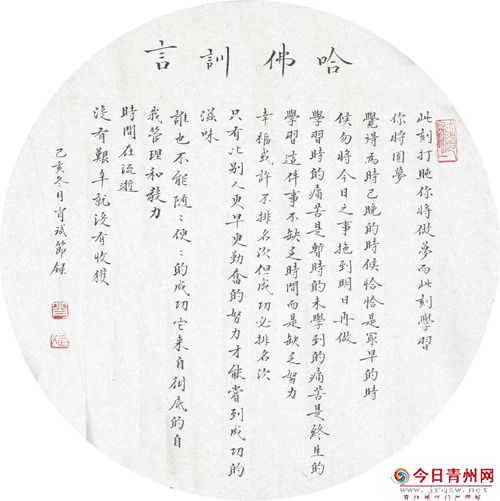 哈佛訓言
此刻打盹你将做夢而此刻學習
你将圓夢
覺得為時已晚的時候恰恰是最早的時
候勿将今日之事拖到明日再做
學習時的痛苦是暫時的未學到的痛苦是終生的
學習這件事不缺乏時間而是缺乏努力
幸福或許不排名次但成功必排名次
只有比别人更早更勤奮的努力才能嘗到成功的
滋味
誰也不能随〻便〻的成功它来自徹底的自
我管理和毅力
時間在流逝
没有艱辛就没有收獲
己亥冬月育斌節録
今日青州网
www.jrqzw.net